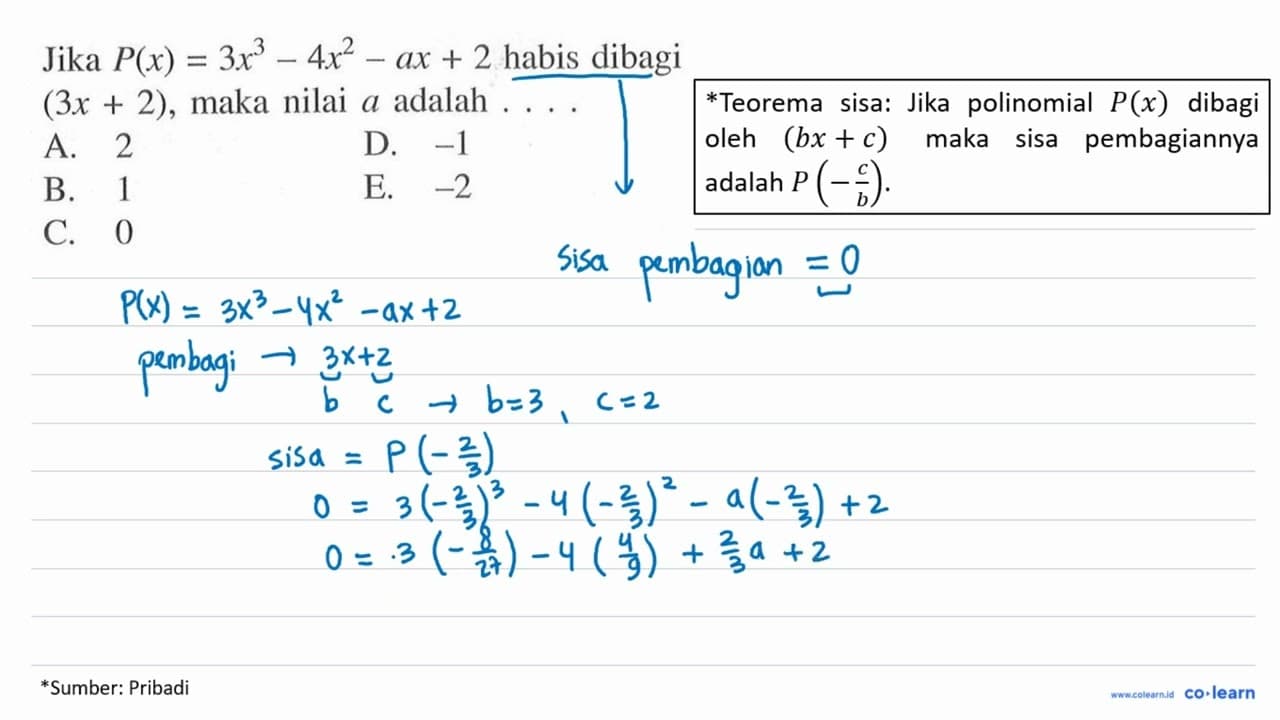 Jika P(x) = 3x³ – 4x² – ax + 2 habis dibagi
(3x + 2), maka nilai a adalah . . . .
A. 2 D. –1
B. 1 E. –2
C. 0
*Teorema sisa: Jika polinomial P(x) dibagi
oleh (bx + c) maka sisa pembagiannya
adalah P(−c/b).
sisa pembagian = 0
P(x) = 3x³ – 4x² – ax + 2
pembagi → 3x+2
b c → b=3, c=2
sisa = P(–2/3)
0 = 3(–2/3)³ – 4(–2/3)² – a(–2/3) + 2
0 = .3(–8/27) – 4(4/9) + 2/3 a + 2
*Sumber: Pribadi
www.colearn.id co·learn